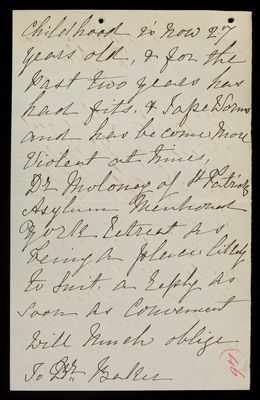 Childhood is now 27
years old, & for the
Past two years has
had fits, & Tape Worms
and has become More
Violent at times,
Dr Moloney of St Patricks
Asylum Mentioned
York Retreat as
being a place likely
to suit. a reply as
soon as convenient
will much oblige
To Dr Baker
46